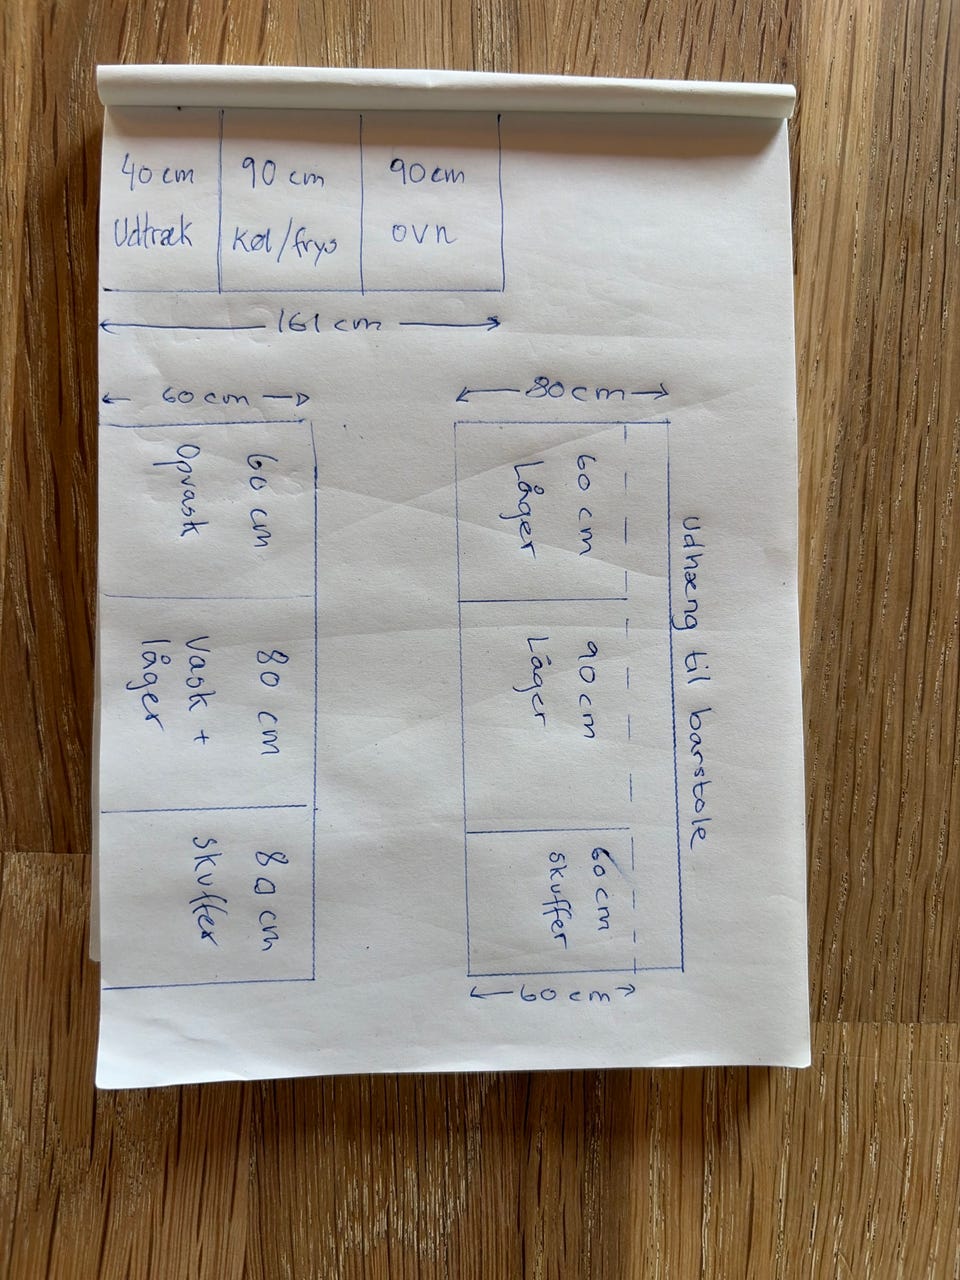 40 cm
Udtræk
90 cm
Køl/frys
90 cm
ovn
161 cm
60 cm
60 cm
Opvask
80 cm
Vask +
låger
80 cm
skuffer
80 cm
60 cm
Låger
90 cm
Låger
60 cm
skuffer
udhæng til barstole
60 cm